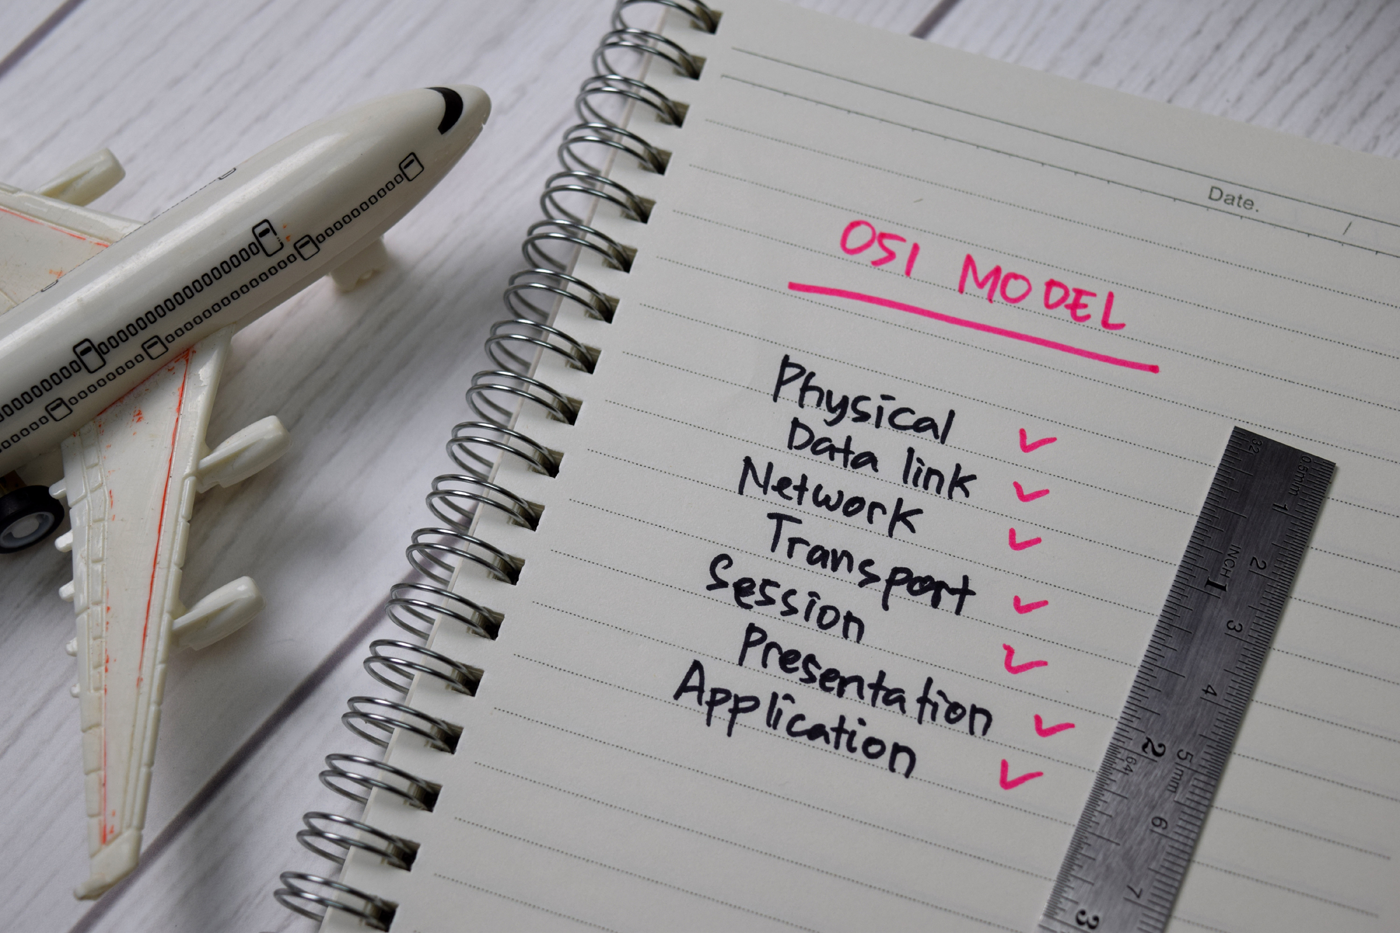 Date. /
OSI MODEL
Physical
Data link
Network
Transport
Session
Presentation
Application
32
0.5mm
1
INCH 1
2
3
4
2
64
5
mm
6
7
3